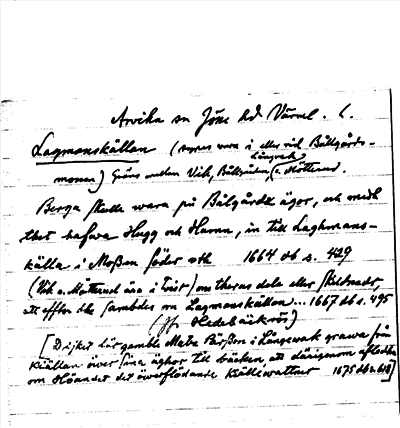 Arvika sn Jösse hd Värml. l.
Lagmanskällan (synes vara i eller vid Bålgårds-
mossen) Gräns mellan Vik, Bålgården, Långvak o. Mötterud.
Berga skulle wara på Bålgårdz ägor, och medh
thet hafwa Hugg och Hamn, in till Laghmans-
källa i Måßen söder uth 1664 db s. 429
(Vik o. Mötterud äro i Träte) om theras dele eller skillnadz,
att efter the sambdes om Lagmanskällan... 1667 db s. 495
(Jfr Hedebäckrön)
[Diket lär gamble Matz Pärßon i Långewak grawa från
Kiällan öwer sina äghor till bäcken att därigenom afledha
om Höandet det öwerflödande Kiällewattnet 1675 db s. 618]